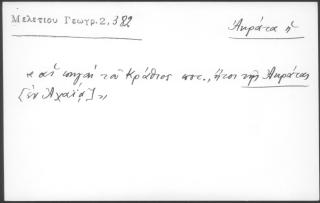 Μελετίου Γεωγρ. 2, 382
Ἀκράτα ἡ
« αἱ πηγαὶ τοῦ Κράθιος ποτ., ἤτοι τῆς Ἀκράτας
[ἐν Ἀχαΐᾳ] »